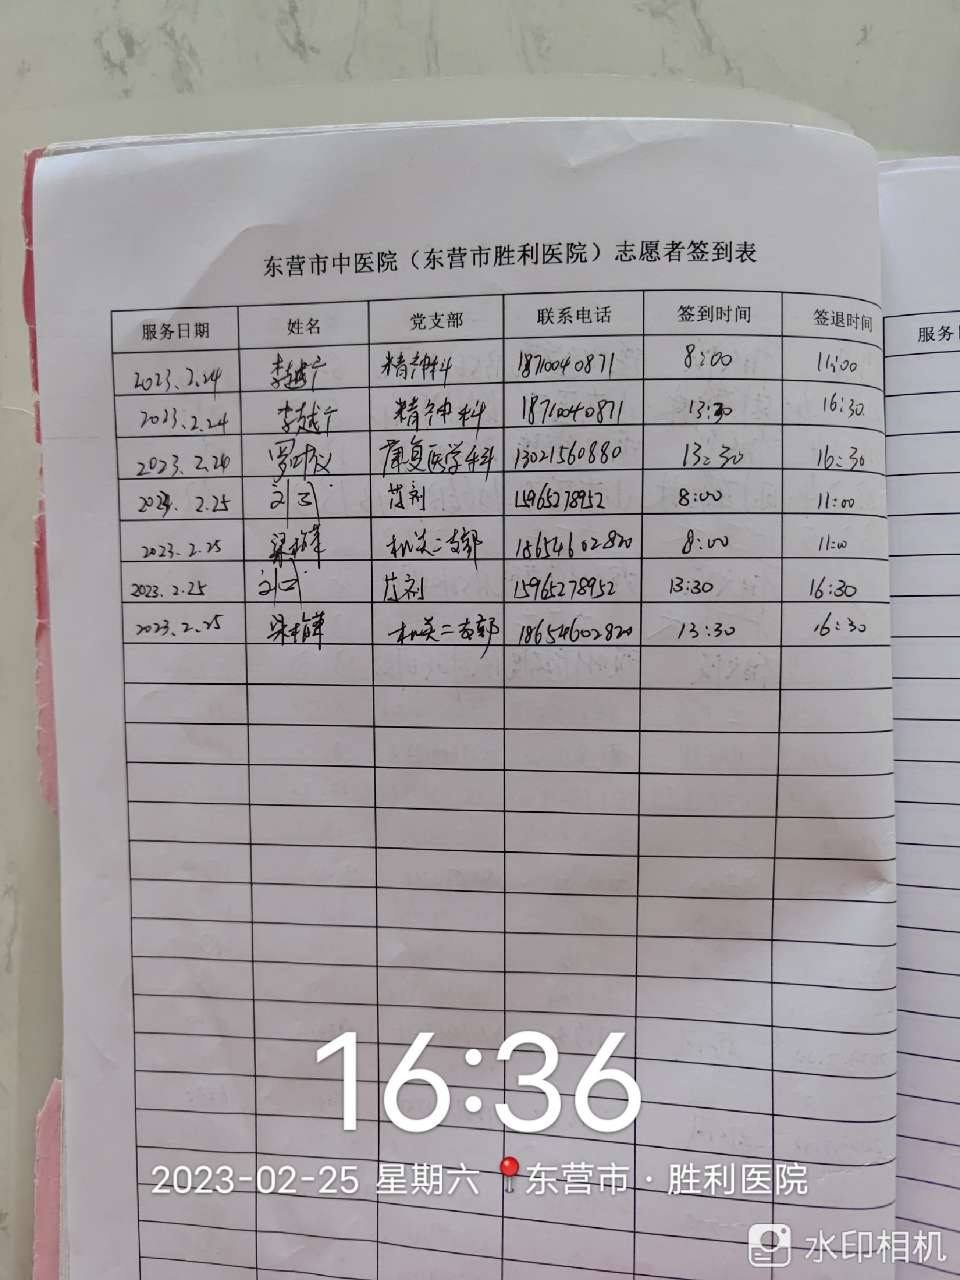 东营市中医院（东营市胜利医院）志愿者签到表
服务日期 姓名 党支部 联系电话 签到时间 签退时间
2023.2.24 李越广 精神科 18710040871 8:00 11:00
2023.2.24 李越广 精神科 18710040871 13:30 16:30
2023.2.24 康复医学科 13021560880 13:30 16:30
2023.2.25 药剂 15965278952 8:00 11:00
2023.2.25 机关二支部 18654602820 8:00 11:00
2023.2.25 药剂 15965278952 13:30 16:30
2023.2.25 机关二支部 18654602820 13:30 16:30
服务日
16:36
2023-02-25 星期六 东营市·胜利医院
水印相机